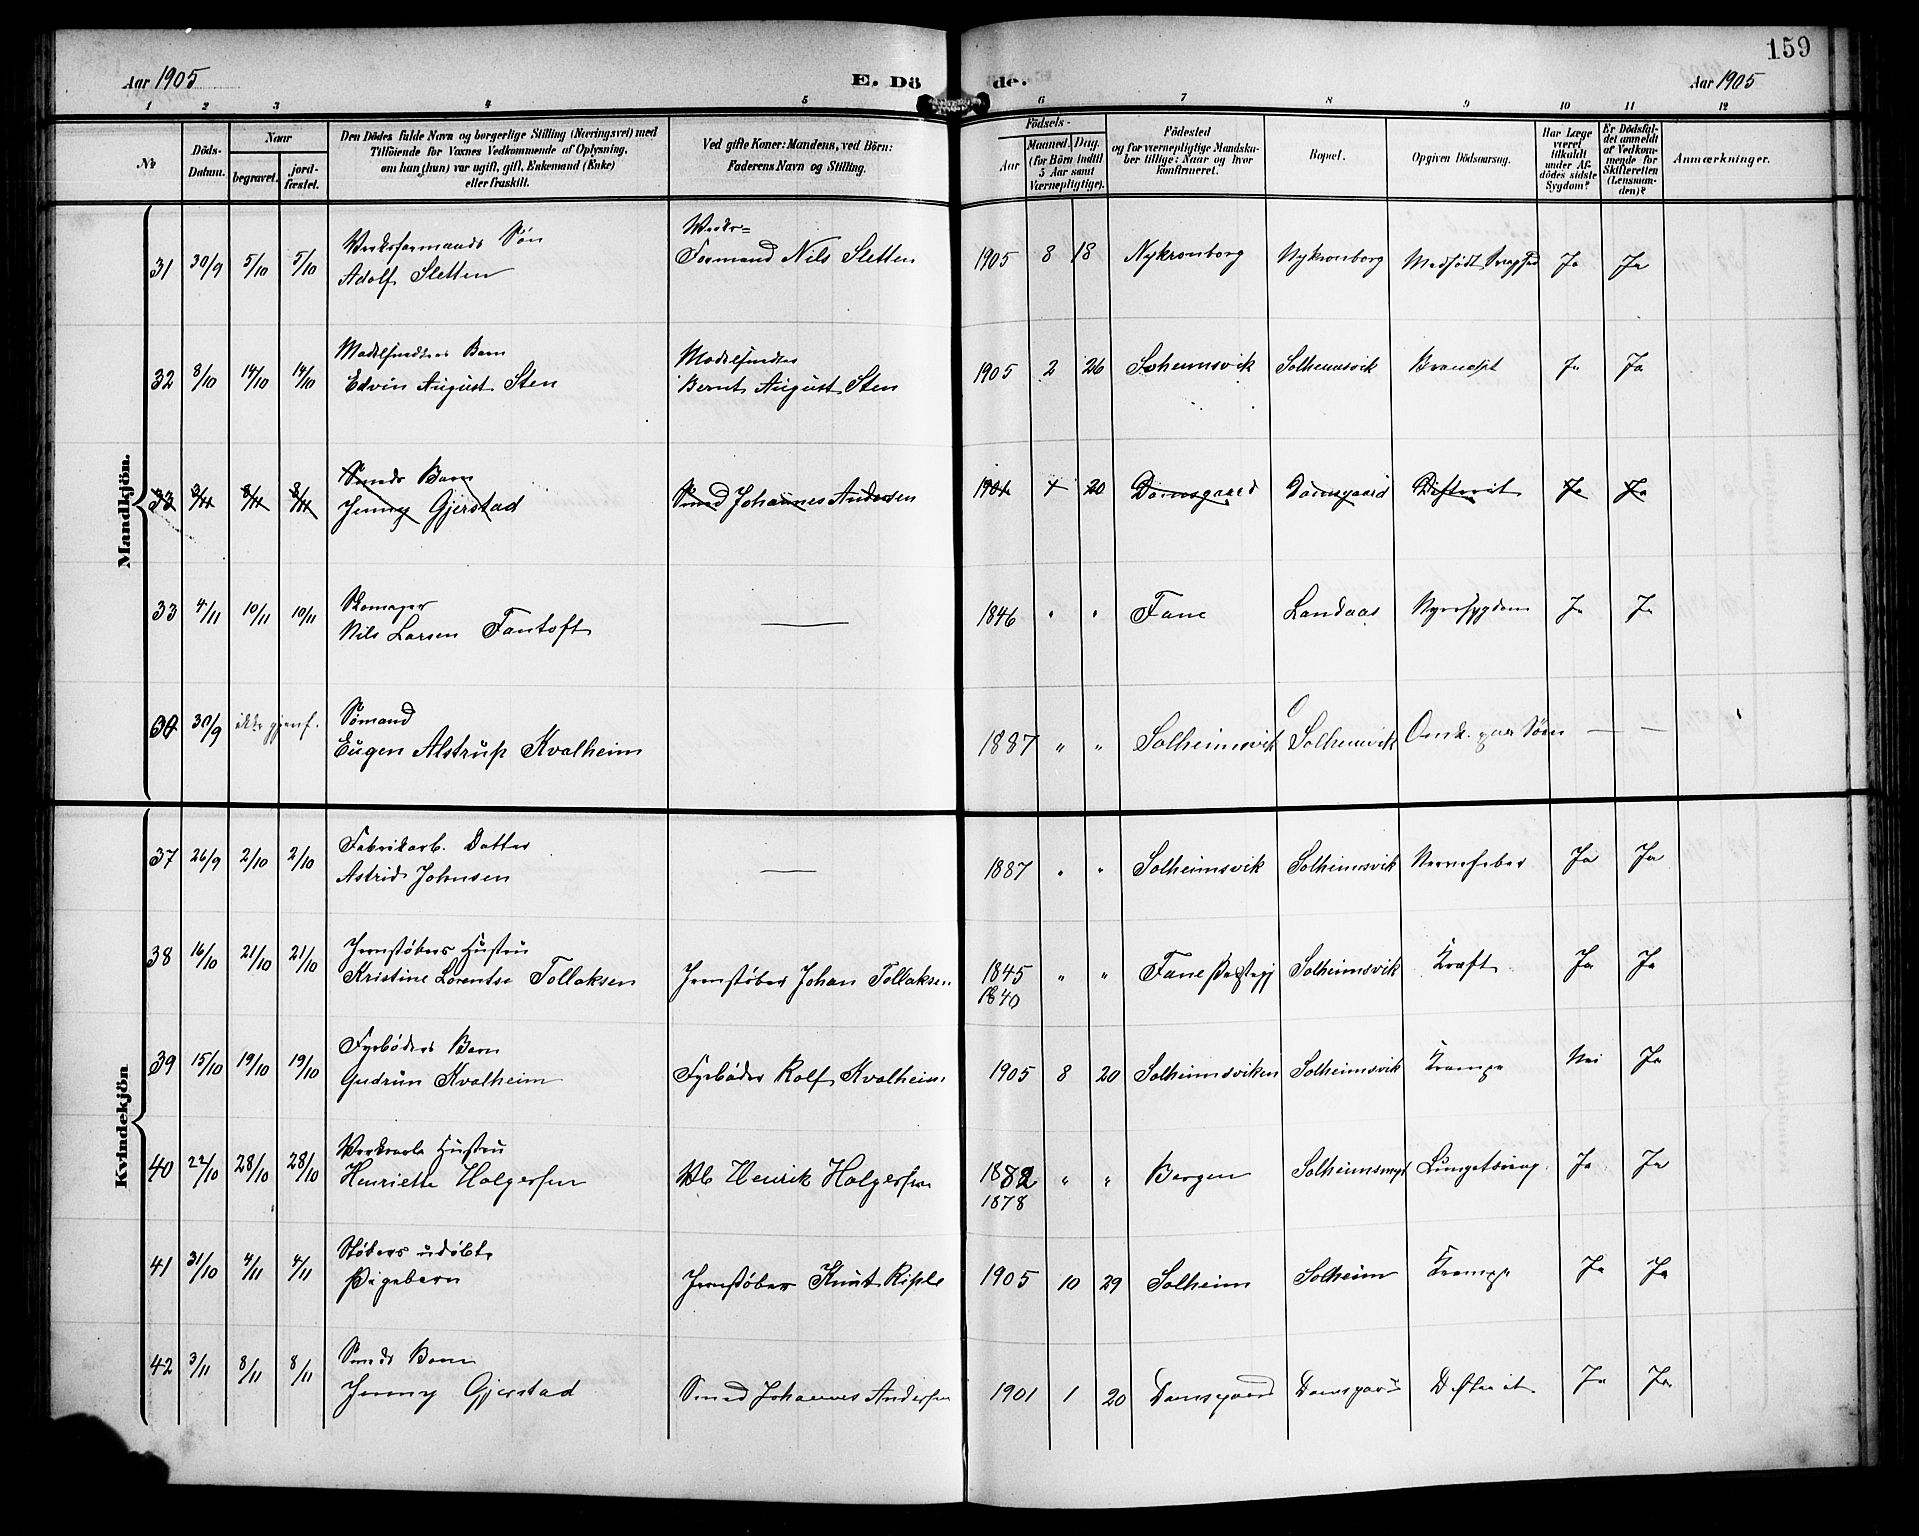 159
Aar 1905
E. Dö
de.
Aar 1905
1 2 3 4 5 6 7 8 9 10 11 12
No
Döds-Datum.
Naar
begravet.
jordfæstet.
Den Dödes fulde Navn og borgerlige Stilling (Næringsvei) med Tilföiende for Voxnes Vedkommende af Oplysning, om han (hun) var ugift, gift, Enkemand (Enke) eller fraskilt.
Ved gifte Koner: Mandens, ved Börn: Faderens Navn og Stilling.
Födsels-
Aar
Maaned. Dag.
(for Börn indtil 5 Aar samt Værnepligtige).
Födested og for værnepligtige Mandskaber tillige: Naar og hvor konfirmeret.
Bopæl.
Opgiven Dödsaarsag.
Har Læge været tilkaldt under Afdödes sidste Sygdom?
Er Dödsfaldet anmeldt af Vedkommende for Skifteretten (Lensmanden)?
Anmærkninger.
Mandkjön.
31 30/9 5/10 5/10 Verksformands Søn Adolf Sletten Verks= Formand Nils Sletten 1905 8 18 Nykronborg Nykronborg Medfødt Svaghed Ja Ja
32 8/10 14/10 14/10 Modelsnedkers Barn Edvin August Sten Modelsnedker Bernt August Sten 1905 2 26 Solheimsvik Solheimsvik Ja Ja
33 3/11 8/11 8/11 Smeds Barn Jenny Gjerstad Smed Johannes Andersen 1901 1 20 Damsgaard Damsgaard Difterit Ja Ja
33 4/11 10/11 10/11 Skomager Nils Larsen Fantoft — 1846 " " Fane Landaas Nyresygdom Ja Ja
30/9 ikke gjenf. Sømand Eugen Alstrup Kvalheim 1887 " " Solheimsvik Solheimsvik Omk. paa Søen — —
Kvindekjön
37 26/9 2/10 2/10 Fabrikarb. Datter Astrid Johnsen — 1887 " " Solheimsvik Solheimsvik Nervefeber Ja Ja
38 16/10 21/10 21/10 Jernstøbers Hustru Kristine Lorentse Tollaksen Jernstøber Johan Tollaksen 1845 1840 " " Fane Præstegj Solheimsvik Kræft Ja Ja
39 15/10 19/10 19/10 Fyrbøders Barn Gudrun Kvalheim Fyrbøder Rolf Kvalheim 1905 8 20 Solheimsviken Solheimsvik Krampe Nei Ja
40 22/10 28/10 28/10 Verksarb Hustru Henriette Holgersen Vb Henrik Holgersen 1882 1878 " " Bergen Ja Ja
41 31/10 4/11 4/11 Støbers udøbte Pigebarn Jernstøber Knut Risple 1905 10 29 Solheim Solheim Krampe Ja Ja
42 3/11 8/11 8/11 Smeds Barn Jenny Gjerstad Smed Johannes Andersen 1901 1 20 Damsgaard Damsgaard Difterit Ja Ja